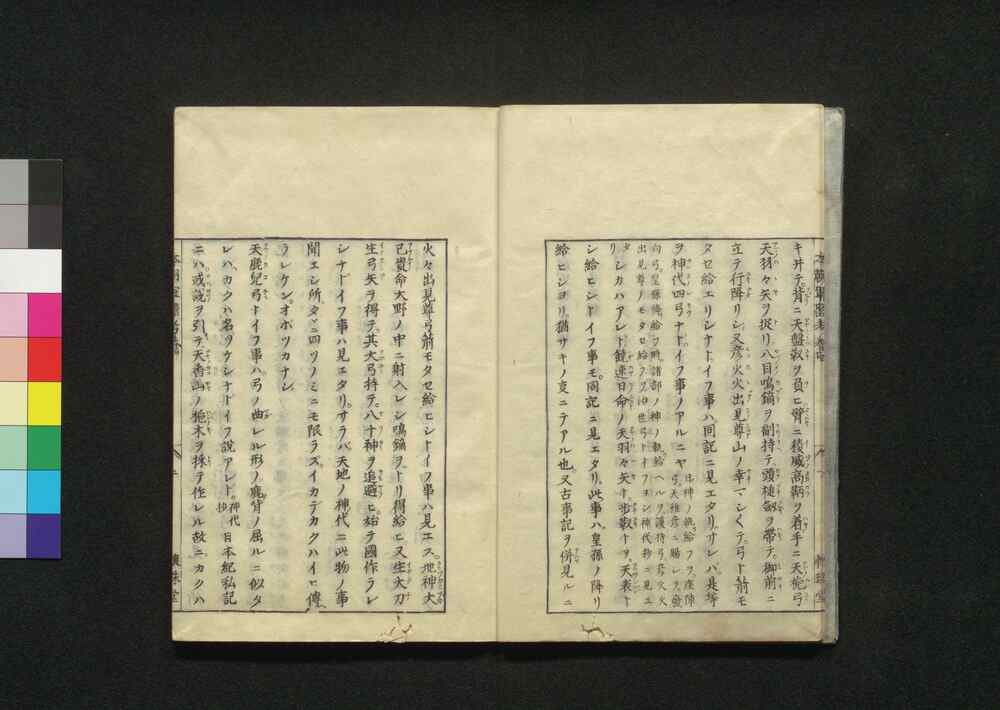 キ并テ背ニ天盤靫ヲ負ヒ臂ニ稜威高鞆ヲ着手ニ天梔弓
天羽々矢ヲ捉リ八目鳴鏑ヲ副持テ頭槌劔ヲ帶テ御前ニ
立テ行降リシ又彦火火出見尊山ノ幸マシ〱テ弓ト箭モ
タセ給エリシナトイフ事ハ同記ニ見エタリサレハ是等
ヲ神代四弓ナトイフ事ノアルニヤ
出見尊ノモタセ給フヲ治世弓トイフヨシ神代抄ニ見エ
タリシカハアレト饒速日命ノ天羽々矢ト歩靫トヲ天表ト
シ給ヒシトイフ事モ同記ニ見エタリ此事ハ皇孫ノ降リ
給ヒシヨリ猶サキノ支ニテアル也又古事記ヲ併見ルニ
火々出見尊弓箭モタセ給ヒシトイフ事ハ見エス地神大
己貴命大野ノ中ニ射入レシ鳴鏑ヲトリ得給ヒ又生大刀
生弓矢ヲ得テ其大弓持テ八十神ヲ追避ヒ始テ國作ラレ
シナトイフ事ハ見エタリサラハ天地ノ神代ニ此物ノ事
聞エシ所タニ四ツノミニモ限ラズイカデカクハイヒ傳
ラレケンオボツカナシ
天鹿兒弓トイフ事ハ弓ノ曲レル形ノ鹿背ノ屈ルニ似タ
レハカクハ名ツケシナトイフ説アレト神代抄日本紀私記
ニハ或説ヲ引テ天香山ノ梔木ヲ採テ作レル故ニカクハ